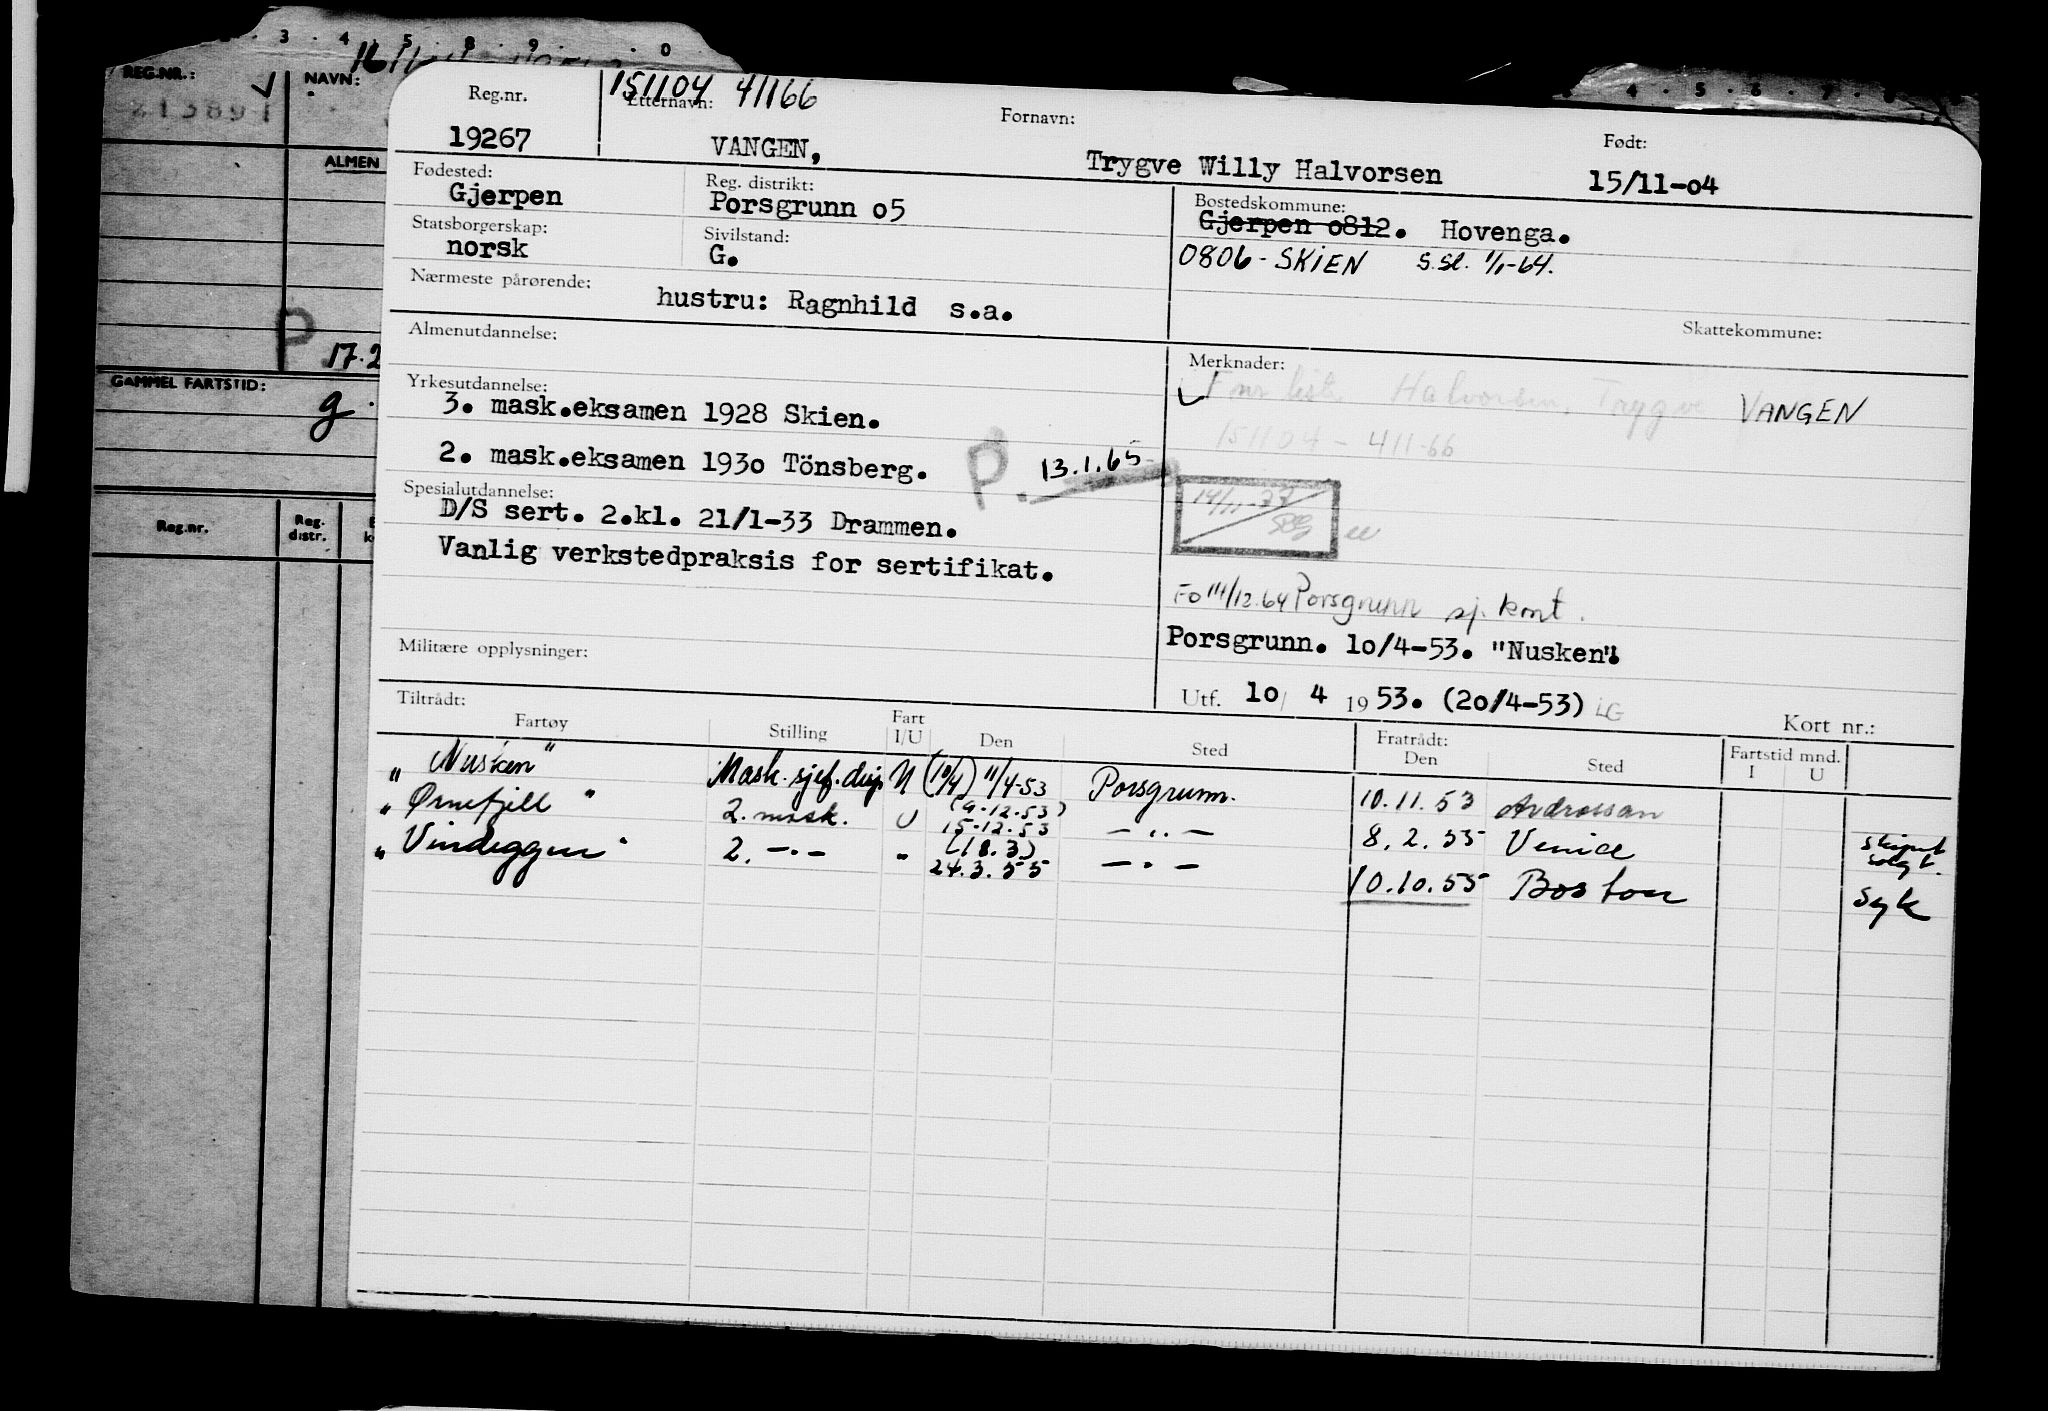 3 . 4 . 5 . 8 . 9 . . 0
4 . 5 . 6 . 7 . 8
REG.NR.:
NAVN:
213891
ALMEN
P 17.2
GAMMEL FARTSTID:
g.
Reg.nr.
Reg. distr.
151104 41166
Reg.nr.
Etternavn:
Fornavn:
Født:
19267
VANGEN,
Trygve Willy Halvorsen
15/11-04
Fødested:
Reg. distrikt:
Bostedskommune:
Gjerpen
Porsgrunn o5
Gjerpen o812. Hovenga.
Statsborgerskap:
Sivilstand:
norsk
G.
0806 - SKIEN S.Sl. 1/1-64.
Nærmeste pårørende:
hustru: Ragnhild s.a.
Skattekommune:
Almenutdannelse:
Merknader:
Fnr liste Halvorsen, Trygve VANGEN
151104 - 411-66
Yrkesutdannelse:
3. mask.eksamen 1928 Skien.
2. mask.eksamen 193o Tönsberg.
P. 13.1.65
Spesialutdannelse:
D/S sert. 2.kl. 21/1-33 Drammen.
Vanlig verkstedpraksis for sertifikat.
Fo 14/12.64 Porsgrunn sj. kont.
Porsgrunn. 1o/4-53. "Nusken".
Militære opplysninger:
Utf. 1o/ 4 1953. (20/4-53) LG
Tiltrådt:
Kort nr.:
Fartøy
Stilling
Fart I/U
Den
Sted
Fratrådt: Den
Sted
Fartstid mnd. I U
"Nusken" Mask.sjef.disp U (10/4) 11/4-53 Porsgrunn. 10.11.53 Ardrossan
"Ørnefjell" 2. mask. U (9.12.53) 15.12.53 - " - 8.2.55 Venice skipet solgt.
"Vindeggen" 2. - " - " (18.3) 24.3.55 - " - 10.10.55 Boston syk